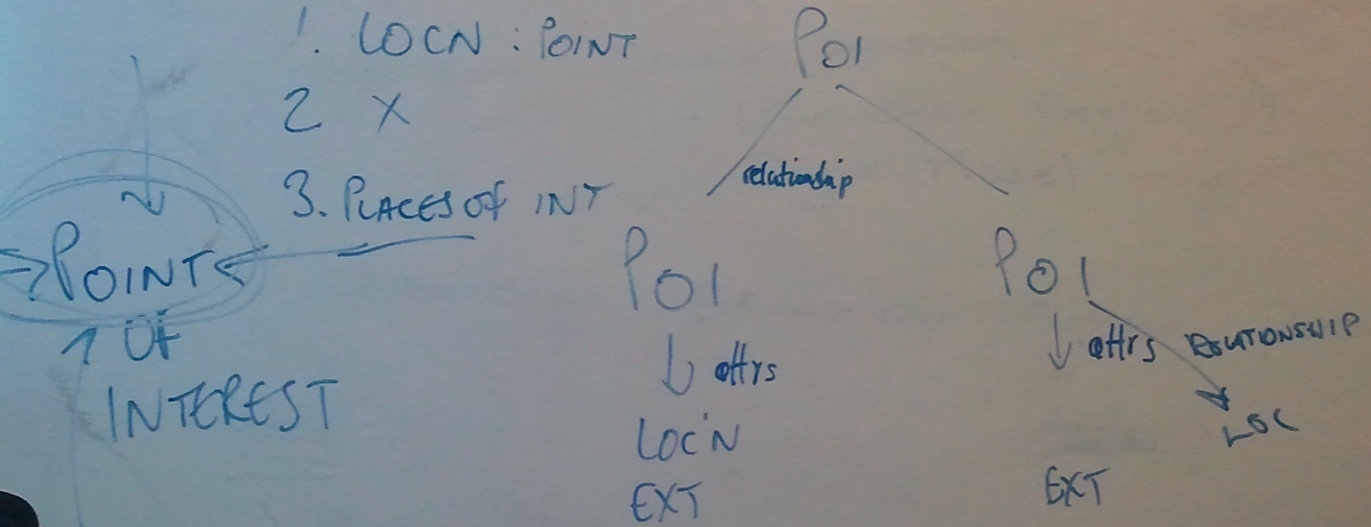 1. LOCN : POINT
2 X
3. PLACES OF INT
POINT
OF
INTEREST
POI
relationship
POI
POI
attrs
attrs
RELATIONSHIP
LOC'N
LOC
EXT
EXT